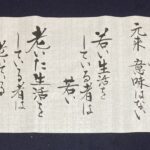 元来 意味はない
若い生活を
している者は
若い
老いた生活を
している者は
老いてる